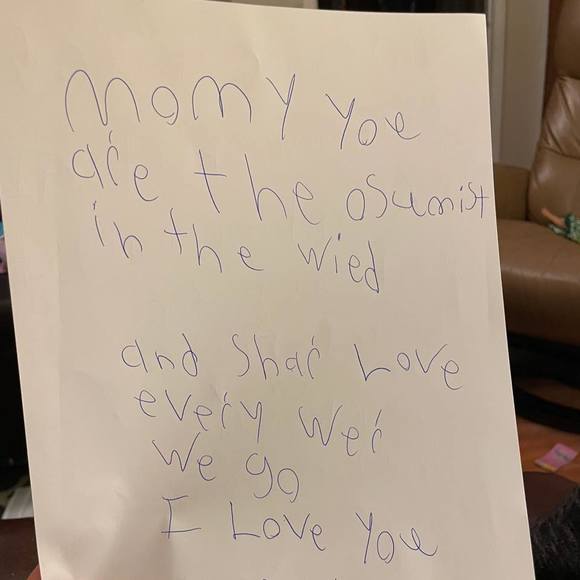 Momy you
are the osumist
in the wied
and shar Love
every wer
we go
I Love you